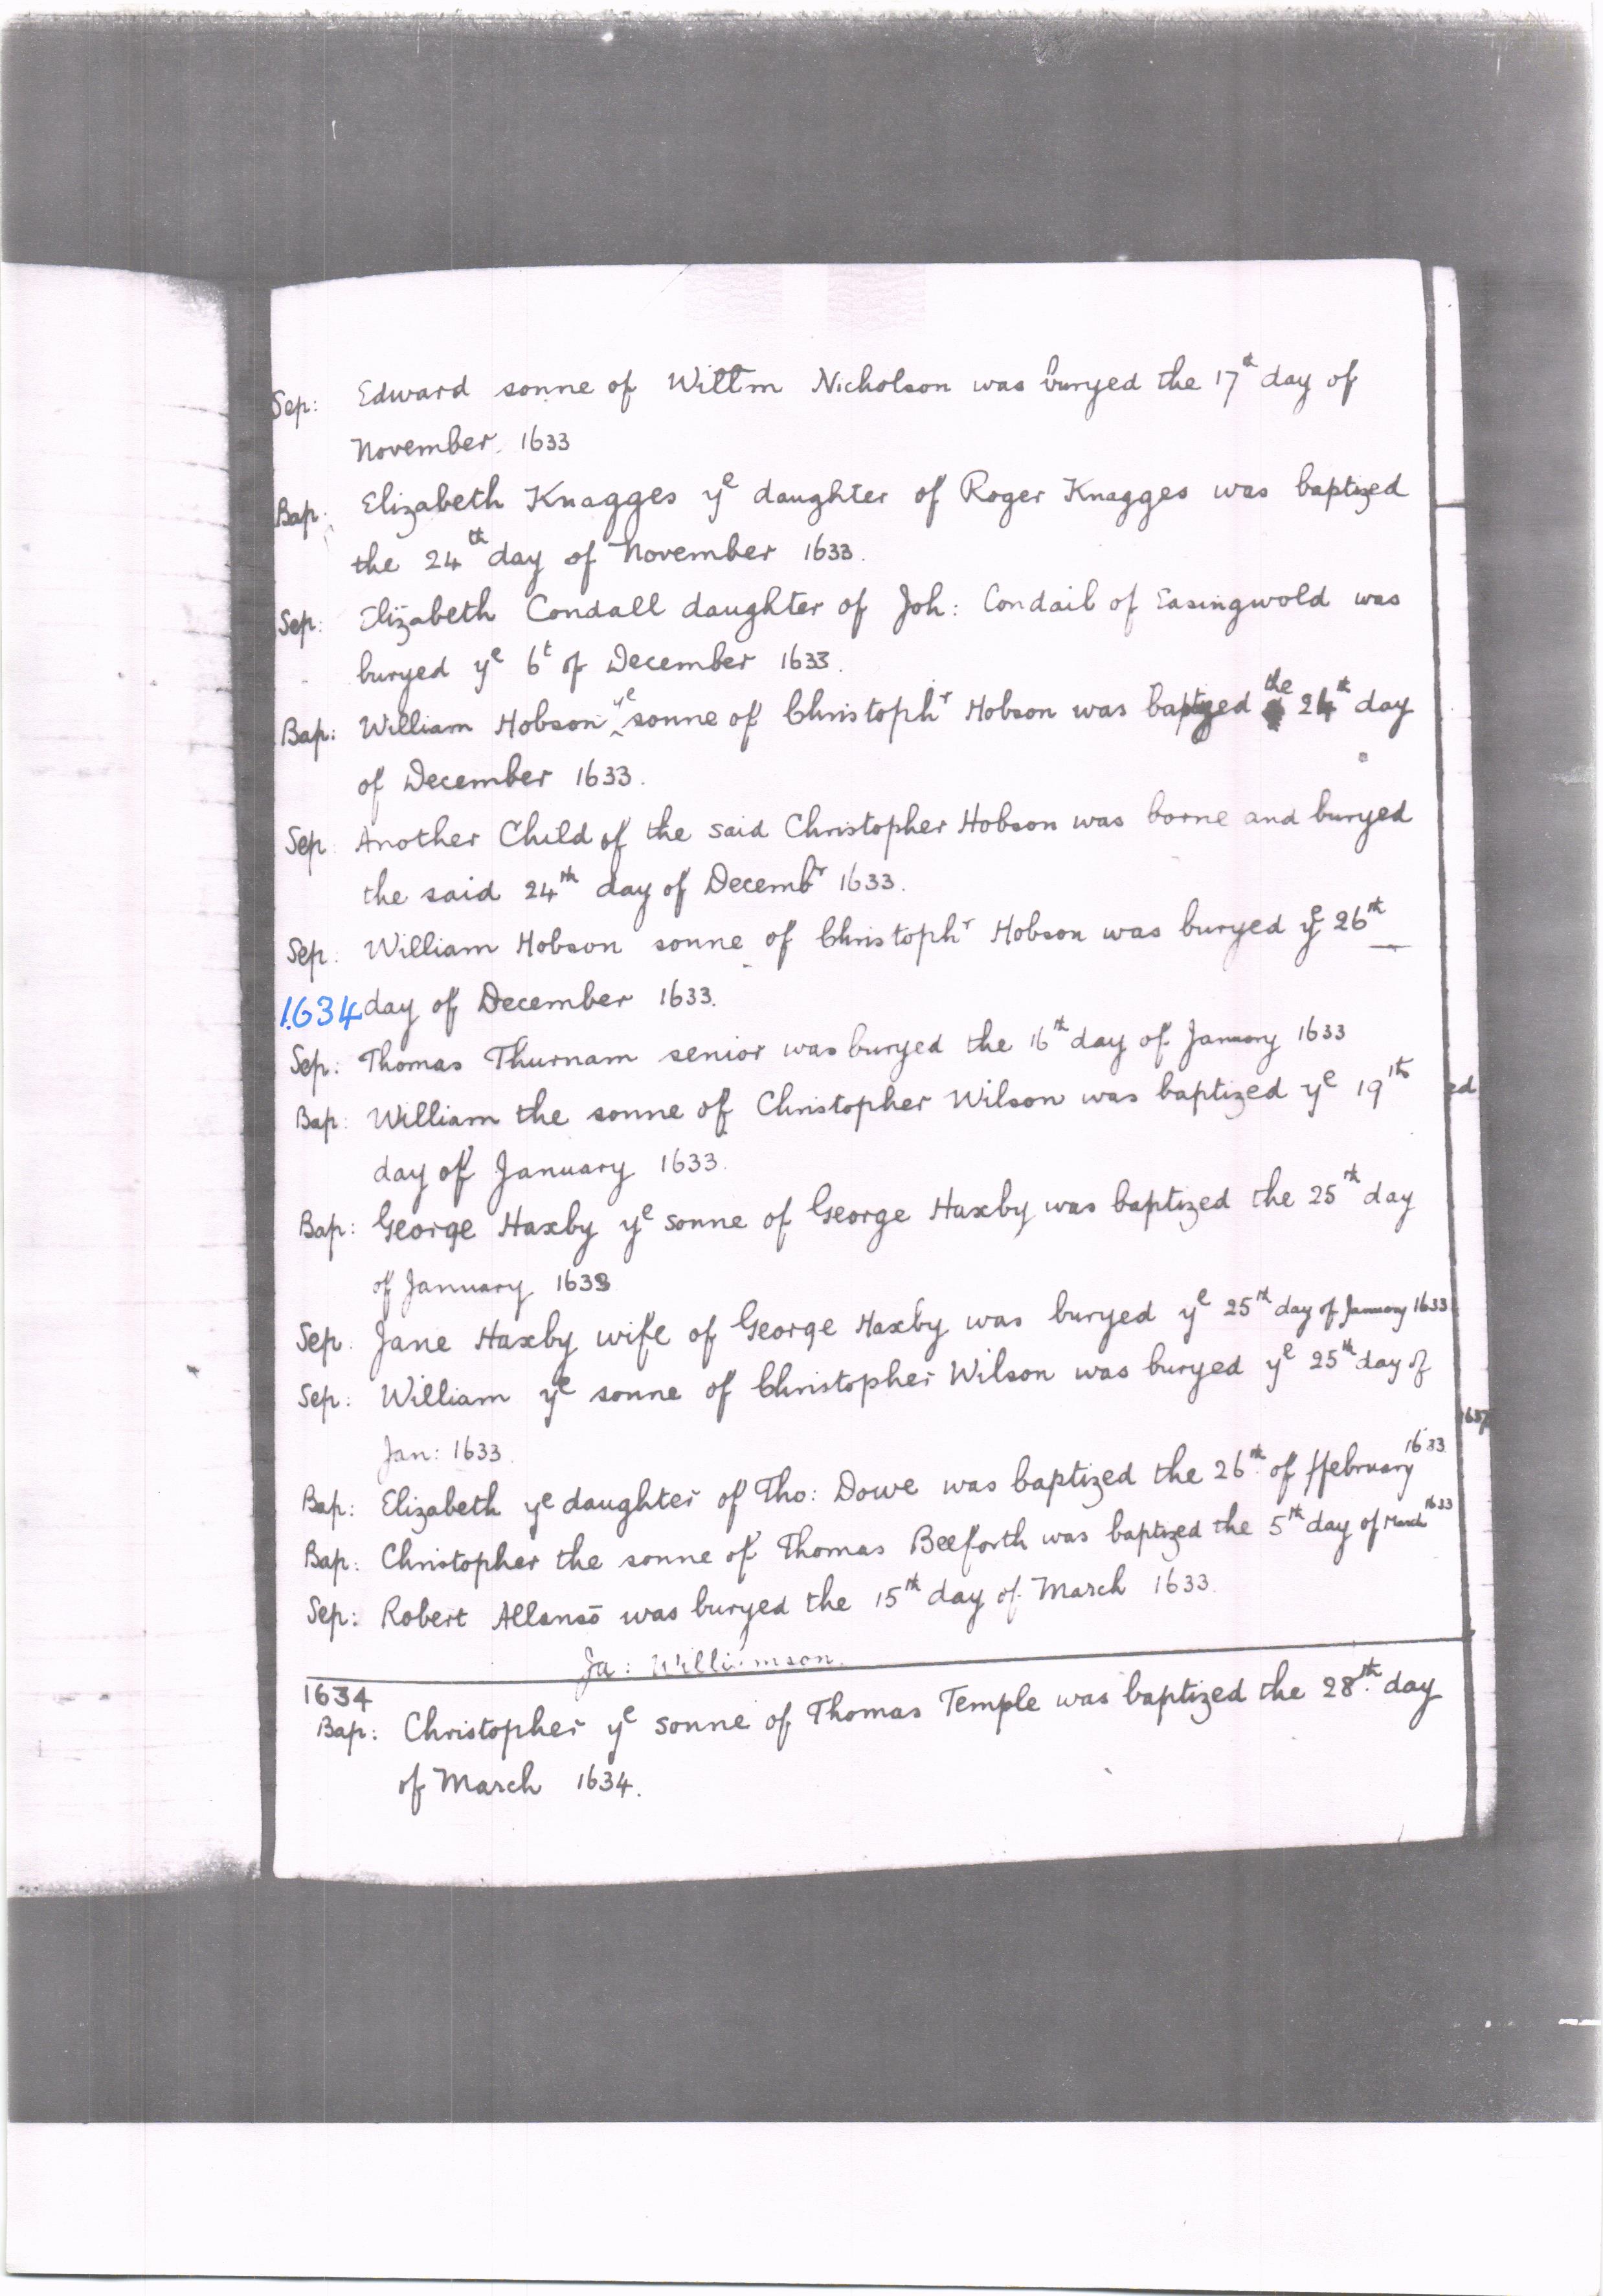 Sep: Edward sonne of Willm Nicholson was buryed the 17th day of
November. 1633
Bap: Elizabeth Knagges ye daughter of Roger Knagges was baptized
the 24th day of November 1633.
Sep: Elizabeth Condall daughter of Joh: Condall of Easingwold was
buryed ye 6t of December 1633.
Bap: William Hobson ye sonne of Christophr Hobson was baptized the 24th day
of December 1633.
Sep: Another Child of the said Christopher Hobson was borne and buryed
the said 24th day of Decembr 1633.
Sep: William Hobson sonne of Christophr Hobson was buryed ye 26th
1634 day of December 1633.
Sep: Thomas Thurnam senior was buryed the 16th day of January 1633
Bap: William the sonne of Christopher Wilson was baptized ye 19th
day of January 1633.
Bap: George Haxby ye sonne of George Haxby was baptized the 25th day
of January 1633
Sep: Jane Haxby wife of George Haxby was buryed ye 25th day of January 1633
Sep: William ye sonne of Christopher Wilson was buryed ye 25th day of
Jan: 1633.
Bap: Elizabeth ye daughter of Tho: Dowe was baptized the 26th of ffebruary 1633
Bap: Christopher the sonne of Thomas Beeforth was baptized the 5th day of March 1633
Sep: Robert Allansō was buryed the 15th day of March 1633.
Ja: Williamson.
1634
Bap: Christopher ye sonne of Thomas Temple was baptized the 28th day
of March 1634.